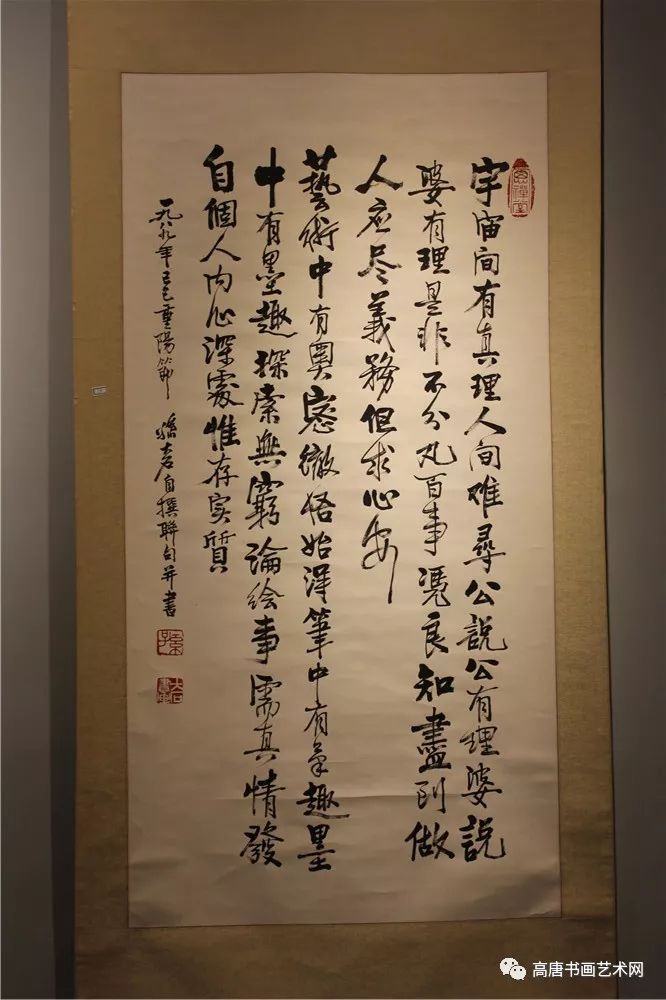 宇宙间有真理人间难尋公說公有理婆說
婆有理是非不分凡百事凴良知盡到做
人应尽義務但求心安
藝術中有奧密徹悟始得筆中有笔趣墨
中有墨趣探索無窮論绘事需真情發
自個人内心深處惟存实質
一九八九年己巳重陽節 孫大石自撰聯句并書
高唐书画艺术网